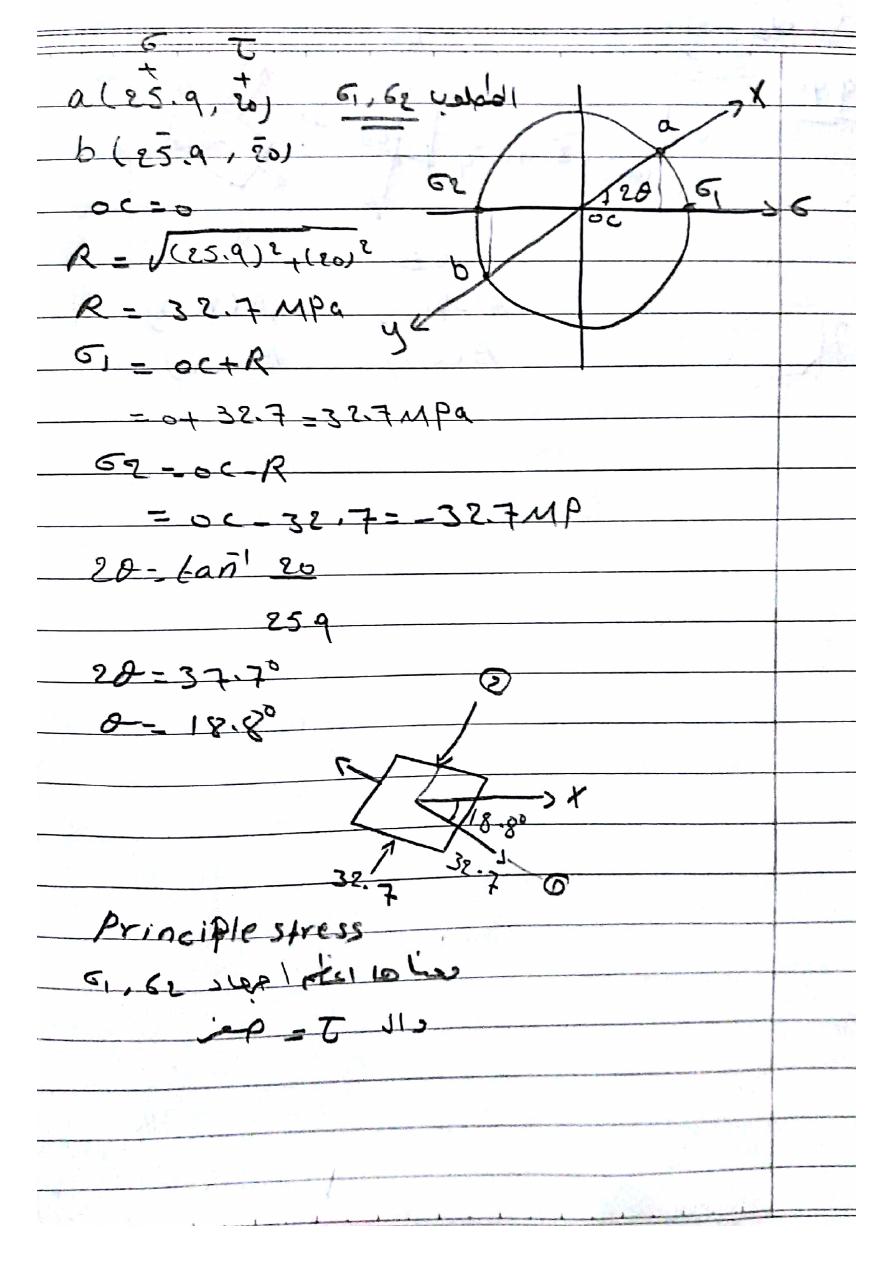 σ τ
+ +
a (25.9, 20) المطلوب σ1, σ2
- -
b (25.9, 20)
oc = 0
R = √(25.9)² + (20)²
R = 32.7 MPa
σ1 = oc + R
= 0 + 32.7 = 32.7 MPa
σ2 = oc - R
= oc - 32.7 = -32.7 MP
2θ = tan⁻¹ 20
25.9
2θ = 37.7°
θ = 18.8°
X
a
σ2
2θ
σ1
σ
oc
b
y
2
X
18.8°
32.7
32.7
1
Principle stress
معناها اعظم اجهاد σ1, σ2
وال τ = صفر